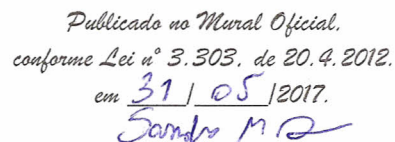 Publicado no Mural Oficial,
conforme Lei nº 3.303, de 20.4.2012.
em 31 / 05 /2017.